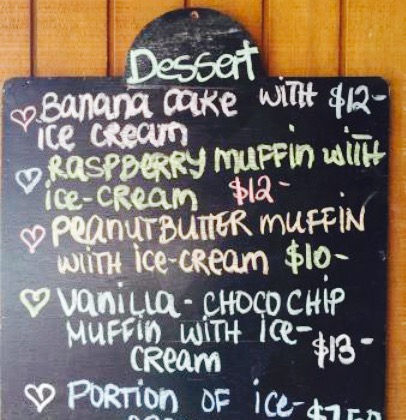 Dessert
Banana cake with $12-
ice cream
Raspberry muffin wiith
ice-cream $12-
Peanutbutter muffin
wiith ice-cream $10-
Vanilla - choco chip
muffin with ice-
cream $13-
Portion of ice-